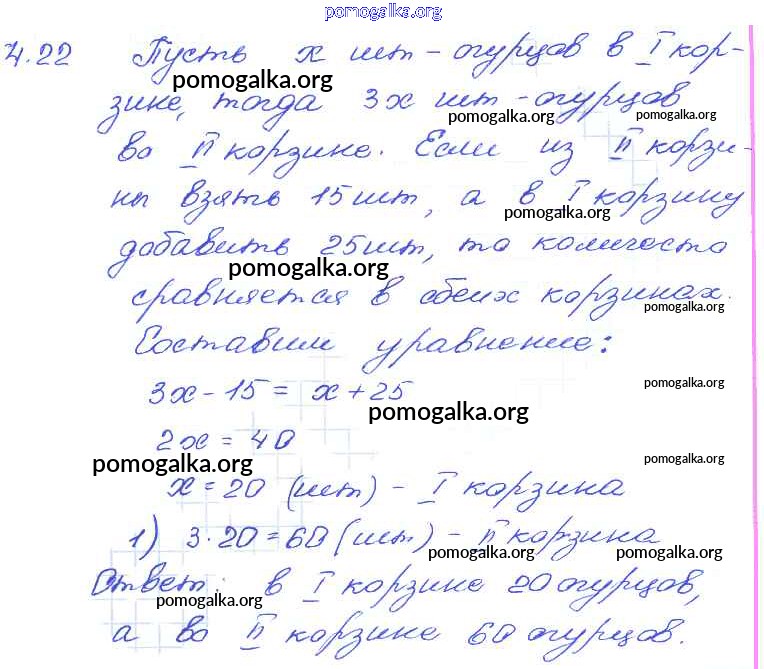 pomogalka.org
4.22 Пусть x шт - огурцов в I кор-
pomogalka.org
зине, тогда 3x шт - огурцов
pomogalka.org pomogalka.org
во II корзине. Если из II корзи-
ны взять 15 шт, а в I корзину
pomogalka.org
добавить 25 шт, то количество
pomogalka.org
сравняется в обеих корзинах.
pomogalka.org
Составим уравнение:
3x - 15 = x + 25
pomogalka.org
pomogalka.org
2x = 40
pomogalka.org pomogalka.org
x = 20 (шт) - I корзина
1) 3·20 = 60 (шт) - II корзина
pomogalka.org pomogalka.org
Ответ: в I корзине 20 огурцов,
pomogalka.org
а во II корзине 60 огурцов.